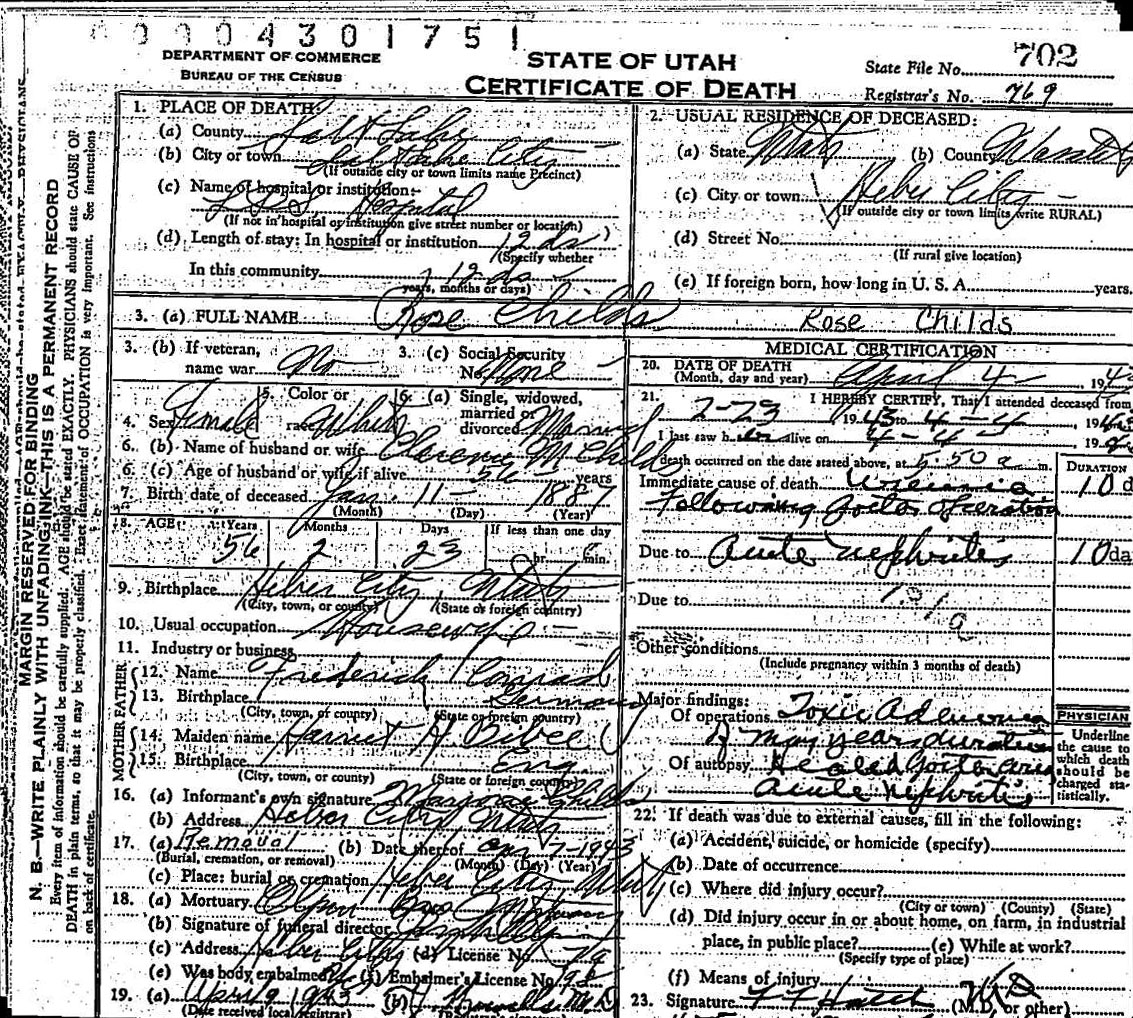 0004301751
DEPARTMENT OF COMMERCE
BUREAU OF THE CENSUS
STATE OF UTAH
CERTIFICATE OF DEATH
State File No. 702
Registrar's No. 769
MARGIN RESERVED FOR BINDING
N. B.—WRITE PLAINLY WITH UNFADING INK—THIS IS A PERMANENT RECORD
Every item of information should be carefully supplied. AGE should be stated EXACTLY. PHYSICIANS should state CAUSE OF
DEATH in plain terms, so that it may be properly classified. Exact statement of OCCUPATION is very important. See instructions
on back of certificate.
1. PLACE OF DEATH:
(a) County Salt Lake
(b) City or town Salt Lake City
(If outside city or town limits name Precinct)
(c) Name of hospital or institution:
L.D.S. Hospital
(If not in hospital or institution give street number or location)
(d) Length of stay: In hospital or institution 12 ds
(Specify whether
In this community 12 ds
years, months or days)
2. USUAL RESIDENCE OF DECEASED:
(a) State Utah (b) County Wasatch
(c) City or town Heber City
(If outside city or town limits write RURAL)
(d) Street No.
(If rural give location)
(e) If foreign born, how long in U. S. A. years.
3. (a) FULL NAME Rose Childs Rose Childs
3. (b) If veteran, name war No 3. (c) Social Security No. None
4. Sex Female 5. Color or race White 6. (a) Single, widowed, married or divorced Married
6. (b) Name of husband or wife Clarence M Childs
6. (c) Age of husband or wife if alive 56 years
7. Birth date of deceased Jan. 11 1887
(Month) (Day) (Year)
8. AGE: Years Months Days If less than one day
56 2 23 hr. min.
9. Birthplace Heber City, Utah
(City, town, or county) (State or foreign country)
10. Usual occupation Housewife
11. Industry or business
FATHER
12. Name Frederick Conrad
13. Birthplace Germany
(City, town, or county) (State or foreign country)
MOTHER
14. Maiden name Harriet A. Bibee
15. Birthplace Eng
(City, town, or county) (State or foreign country)
16. (a) Informant's own signature Marjorie Childs
(b) Address Heber City Utah
17. (a) Removal (b) Date thereof Apr 7-1943
(Burial, cremation, or removal) (Month) (Day) (Year)
(c) Place: burial or cremation Heber City, Utah
18. (a) Mortuary Olpin Bros Mortuary
(b) Signature of funeral director
(c) Address Heber City (d) License No. 76
(e) Was body embalmed (f) Embalmer's License No. 92
19. (a) April 9 1943 (b)
(Date received local registrar)
MEDICAL CERTIFICATION
20. DATE OF DEATH
(Month, day and year) April 4 , 194
21. I HEREBY CERTIFY, That I attended deceased from
2-23 1943 to 4-4 194
I last saw her alive on 4-4 19
death occurred on the date stated above, at 5:50 a m.
DURATION
Immediate cause of death Uremia 10 d
Following goiter operation
Due to acute nephritis 10 da
Due to
Other conditions
(Include pregnancy within 3 months of death)
Major findings:
Of operations Toxic Adenoma
of many years duration
Of autopsy Healed goiter area
acute nephritis
PHYSICIAN
Underline
the cause to
which death
should be
charged sta-
tistically.
22. If death was due to external causes, fill in the following:
(a) Accident, suicide, or homicide (specify)
(b) Date of occurrence
(c) Where did injury occur?
(City or town) (County) (State)
(d) Did injury occur in or about home, on farm, in industrial
place, in public place? (e) While at work?
(Specify type of place)
(f) Means of injury
23. Signature F F Hatch (M.D. or other) MD